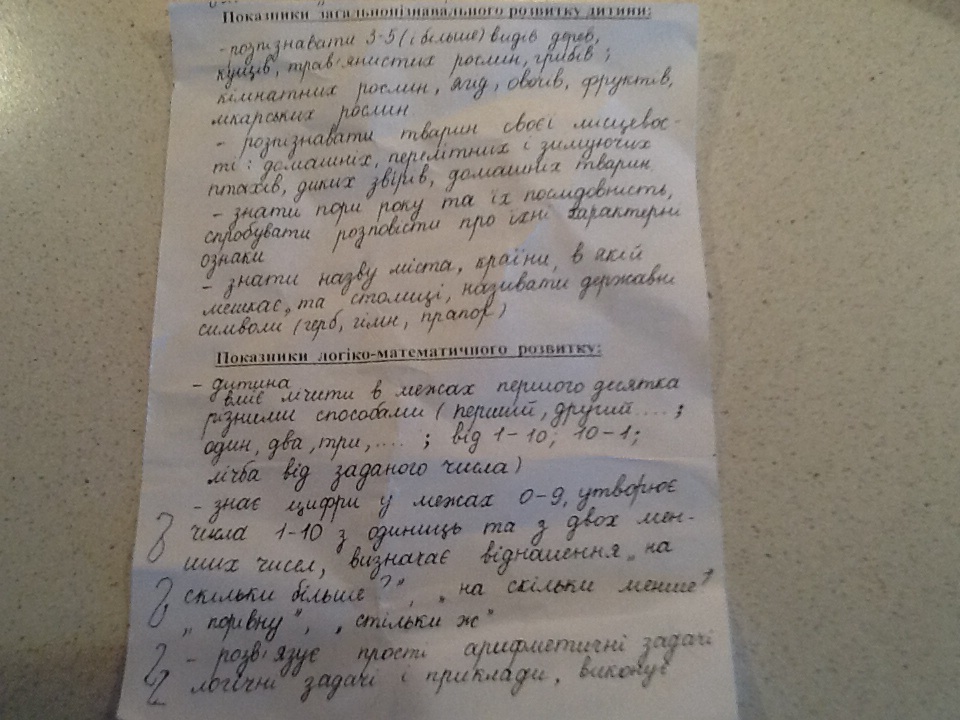 Показники загальнопізнавального розвитку дитини:
- розпізнавати 3-5 (і більше) видів дерев,
кущів, трав'янистих рослин, грибів;
кімнатних рослин, ягід, овочів, фруктів,
лікарських рослин
- розпізнавати тварин своєї місцевос-
ті: домашніх, перелітних і зимуючих
птахів, диких звірів, домашніх тварин
- знати пори року та їх послідовність,
спробувати розповісти про їхні характерні
ознаки
- знати назву міста, країни, в якій
мешкає, та столиці, називати державні
символи (герб, гімн, прапор)
Показники логіко-математичного розвитку:
- дитина
вміє лічити в межах першого десятка
різними способами (перший, другий ....;
один, два, три, .... ; від 1-10; 10-1;
лічба від заданого числа)
- знає цифри у межах 0-9, утворює
числа 1-10 з одиниць та з двох мен-
ших чисел, визначає відношення „на
скільки більше?", „на скільки менше?
„порівну", „стільки ж"
- розв'язує прості арифметичні задачі
логічні задачі і приклади, виконує